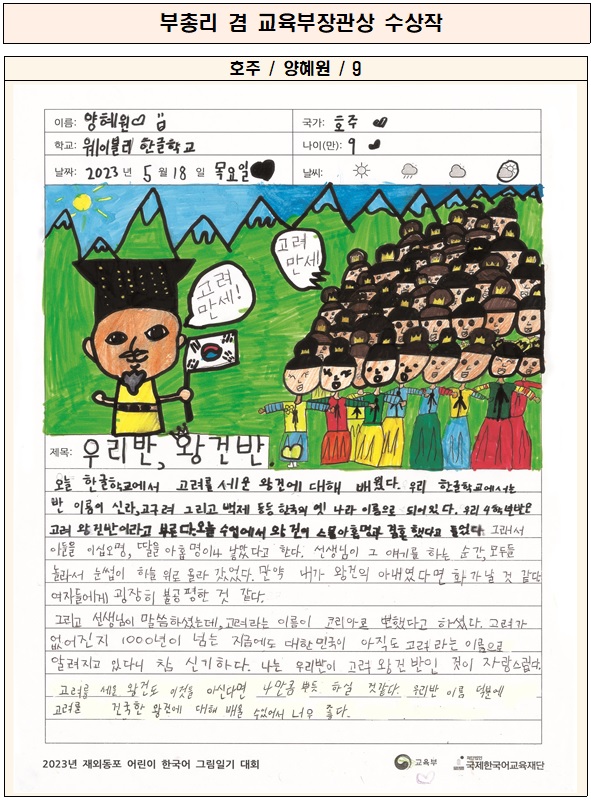 부총리 겸 교육부장관상 수상작
호주 / 양혜원 / 9
이름: 양혜원
국가: 호주
학교: 웨이블리 한글학교
나이(만): 9
날짜: 2023 년 5 월 18 일 목요일
날씨:
고려
만세!
고려
만세
제목: 우리반, 왕건반.
오늘 한글학교에서 고려를 세운 왕건에 대해 배웠다. 우리 한글학교에서는
반 이름이 신라, 고구려 그리고 백제 등등 한국의 옛 나라 이름으로 되어있다. 우리 4학년반은
고려 왕건반이라고 부른다. 오늘 수업에서 왕건이 스물아홉명과 결혼했다고 들었다. 그래서
아들을 이십오명, 딸을 아홉명이나 낳았다고 한다. 선생님이 그 얘기를 하는 순간, 모두들
놀라서 눈썹이 하늘 위로 올라 갔었다. 만약 내가 왕건의 아내였다면 화가날 것 같다.
여자들에게 굉장히 불공평한 것 같다.
그리고 선생님이 말씀하셨는데, 고려라는 이름이 코리아로 변했다고 하셨다. 고려가
없어진지 1000년이 넘는 지금에도 대한민국이 아직도 고려라는 이름으로
알려지고 있다니 참 신기하다. 나는 우리반이 고려 왕건반인 것이 자랑스럽다.
고려를 세운 왕건도 이것을 아신다면 나만큼 뿌듯 하실 것같다. 우리반 이름 덕분에
고려를 건국한 왕건에 대해 배울 수있어서 너무 좋다.
2023년 재외동포 어린이 한국어 그림일기 대회
교육부
재단법인
국제한국어교육재단